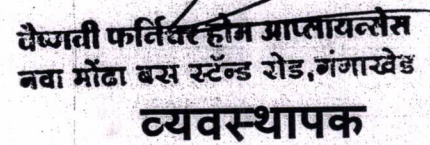 वैष्णवी फर्निचर होम आप्लायन्सेस
नवा मोंढा बस स्टॅन्ड रोड,गंगाखेड
व्यवस्थापक